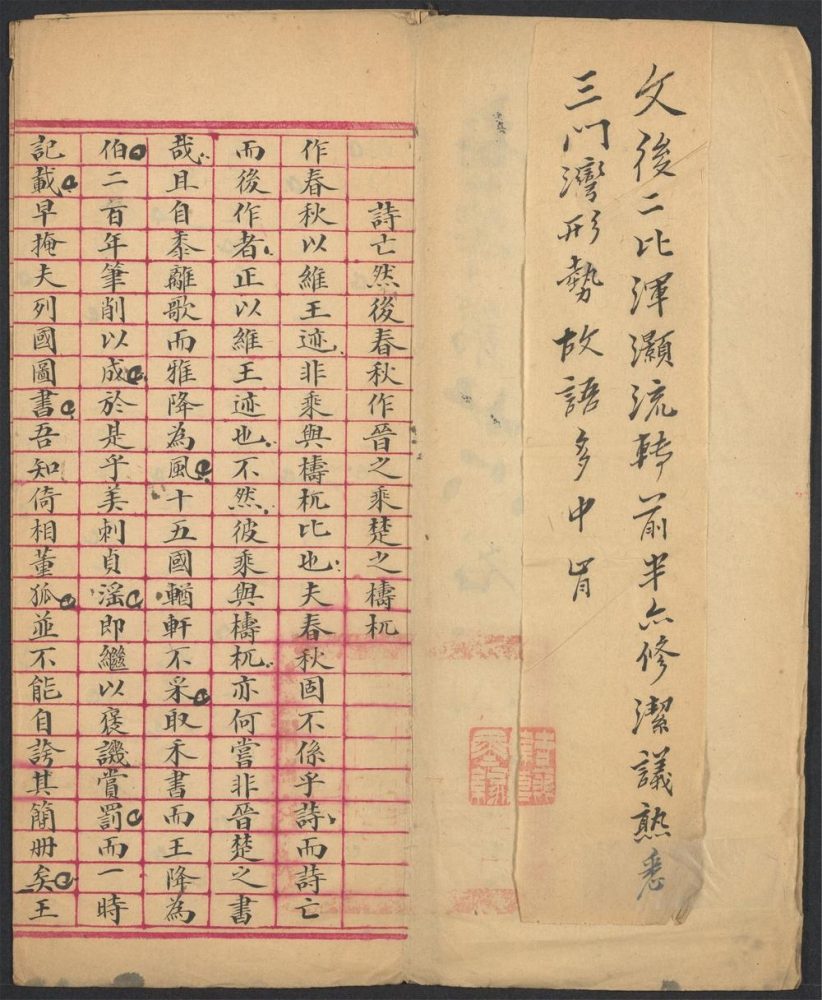 文後二比渾灝流轉前半亦修潔議熟悉
三門灣形勢故語多中肯
詩亡然後春秋作晉之乘楚之檮杌
作春秋以維王迹非乘與檮杌比也夫春秋固不係乎詩而詩亡
而後作者正以維王迹也不然彼乘與檮杌亦何嘗非晉楚之書
哉且自黍離歌而雅降為風十五國輶軒不采取禾書而王降為
伯二百年筆削以成於是乎美刺貞淫即繼以褒譏賞罰而一時
記載早掩夫列國圖書吾知倚相董狐並不能自誇其簡册矣王